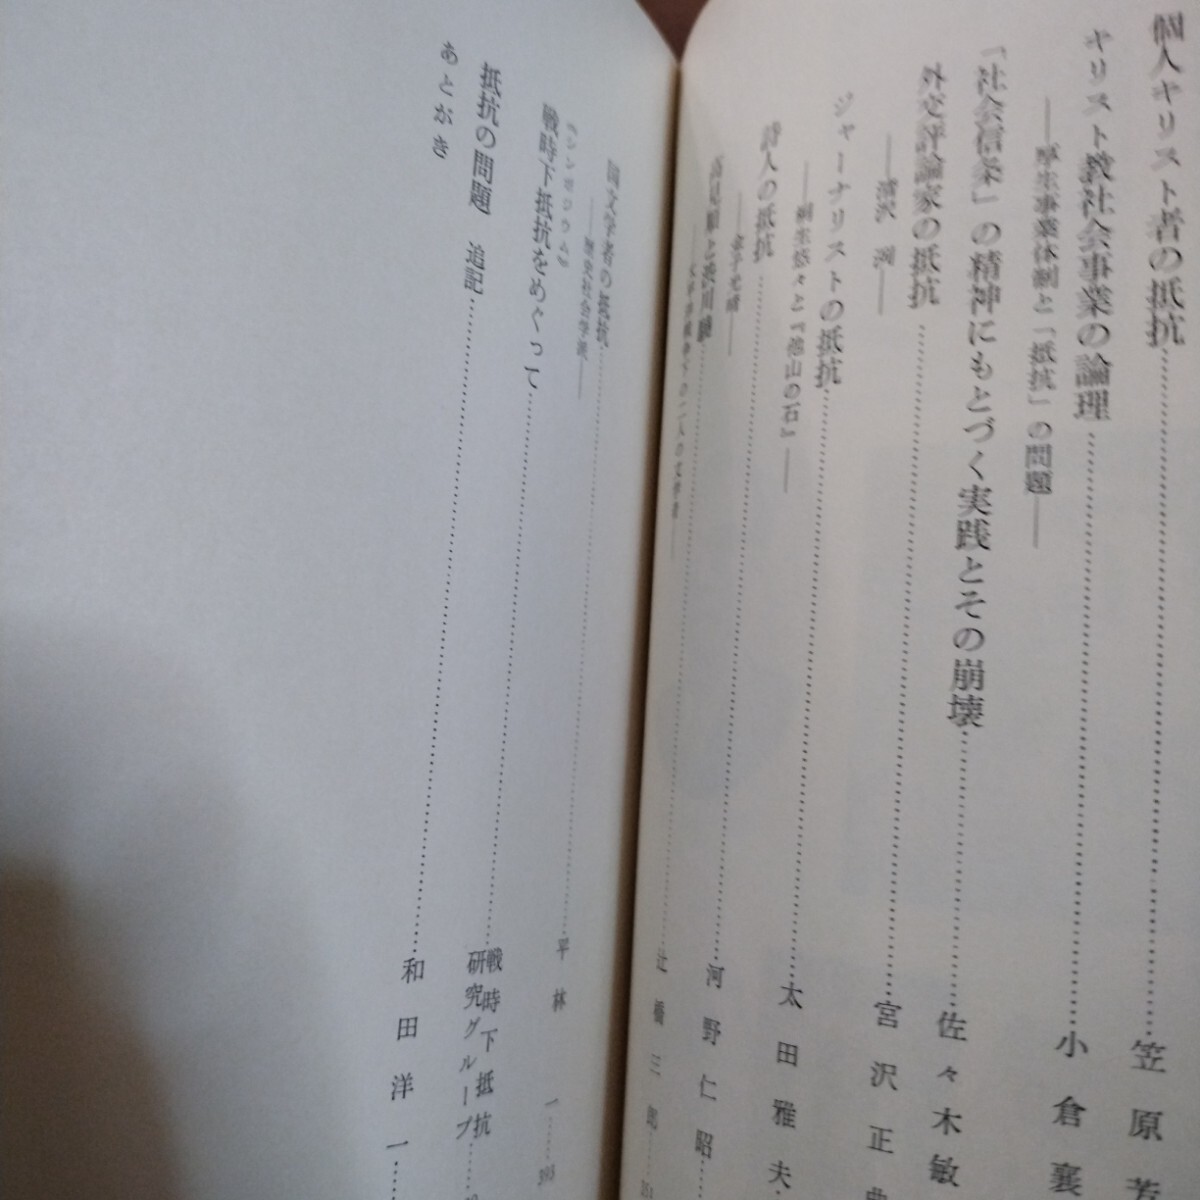 個人キリスト者の抵抗……笠原芳
キリスト教社会事業の論理……小倉襄
――厚生事業体制と「抵抗」の問題――
「社会信条」の精神にもとづく実践とその崩壊……佐々木敏
外交評論家の抵抗……宮沢正典
――清沢洌――
ジャーナリストの抵抗……太田雅夫
――桐生悠々と『他山の石』――
詩人の抵抗……河野仁昭
――金子光晴――
高見順と渋川驍……辻橋三郎
――太平洋戦争下の二人の文学者――
国文学者の抵抗……平林一……393
――歴史社会学派――
《シンポジウム》
戦時下抵抗をめぐって……戦時下抵抗研究グループ
抵抗の問題 追記……和田洋一
あとがき